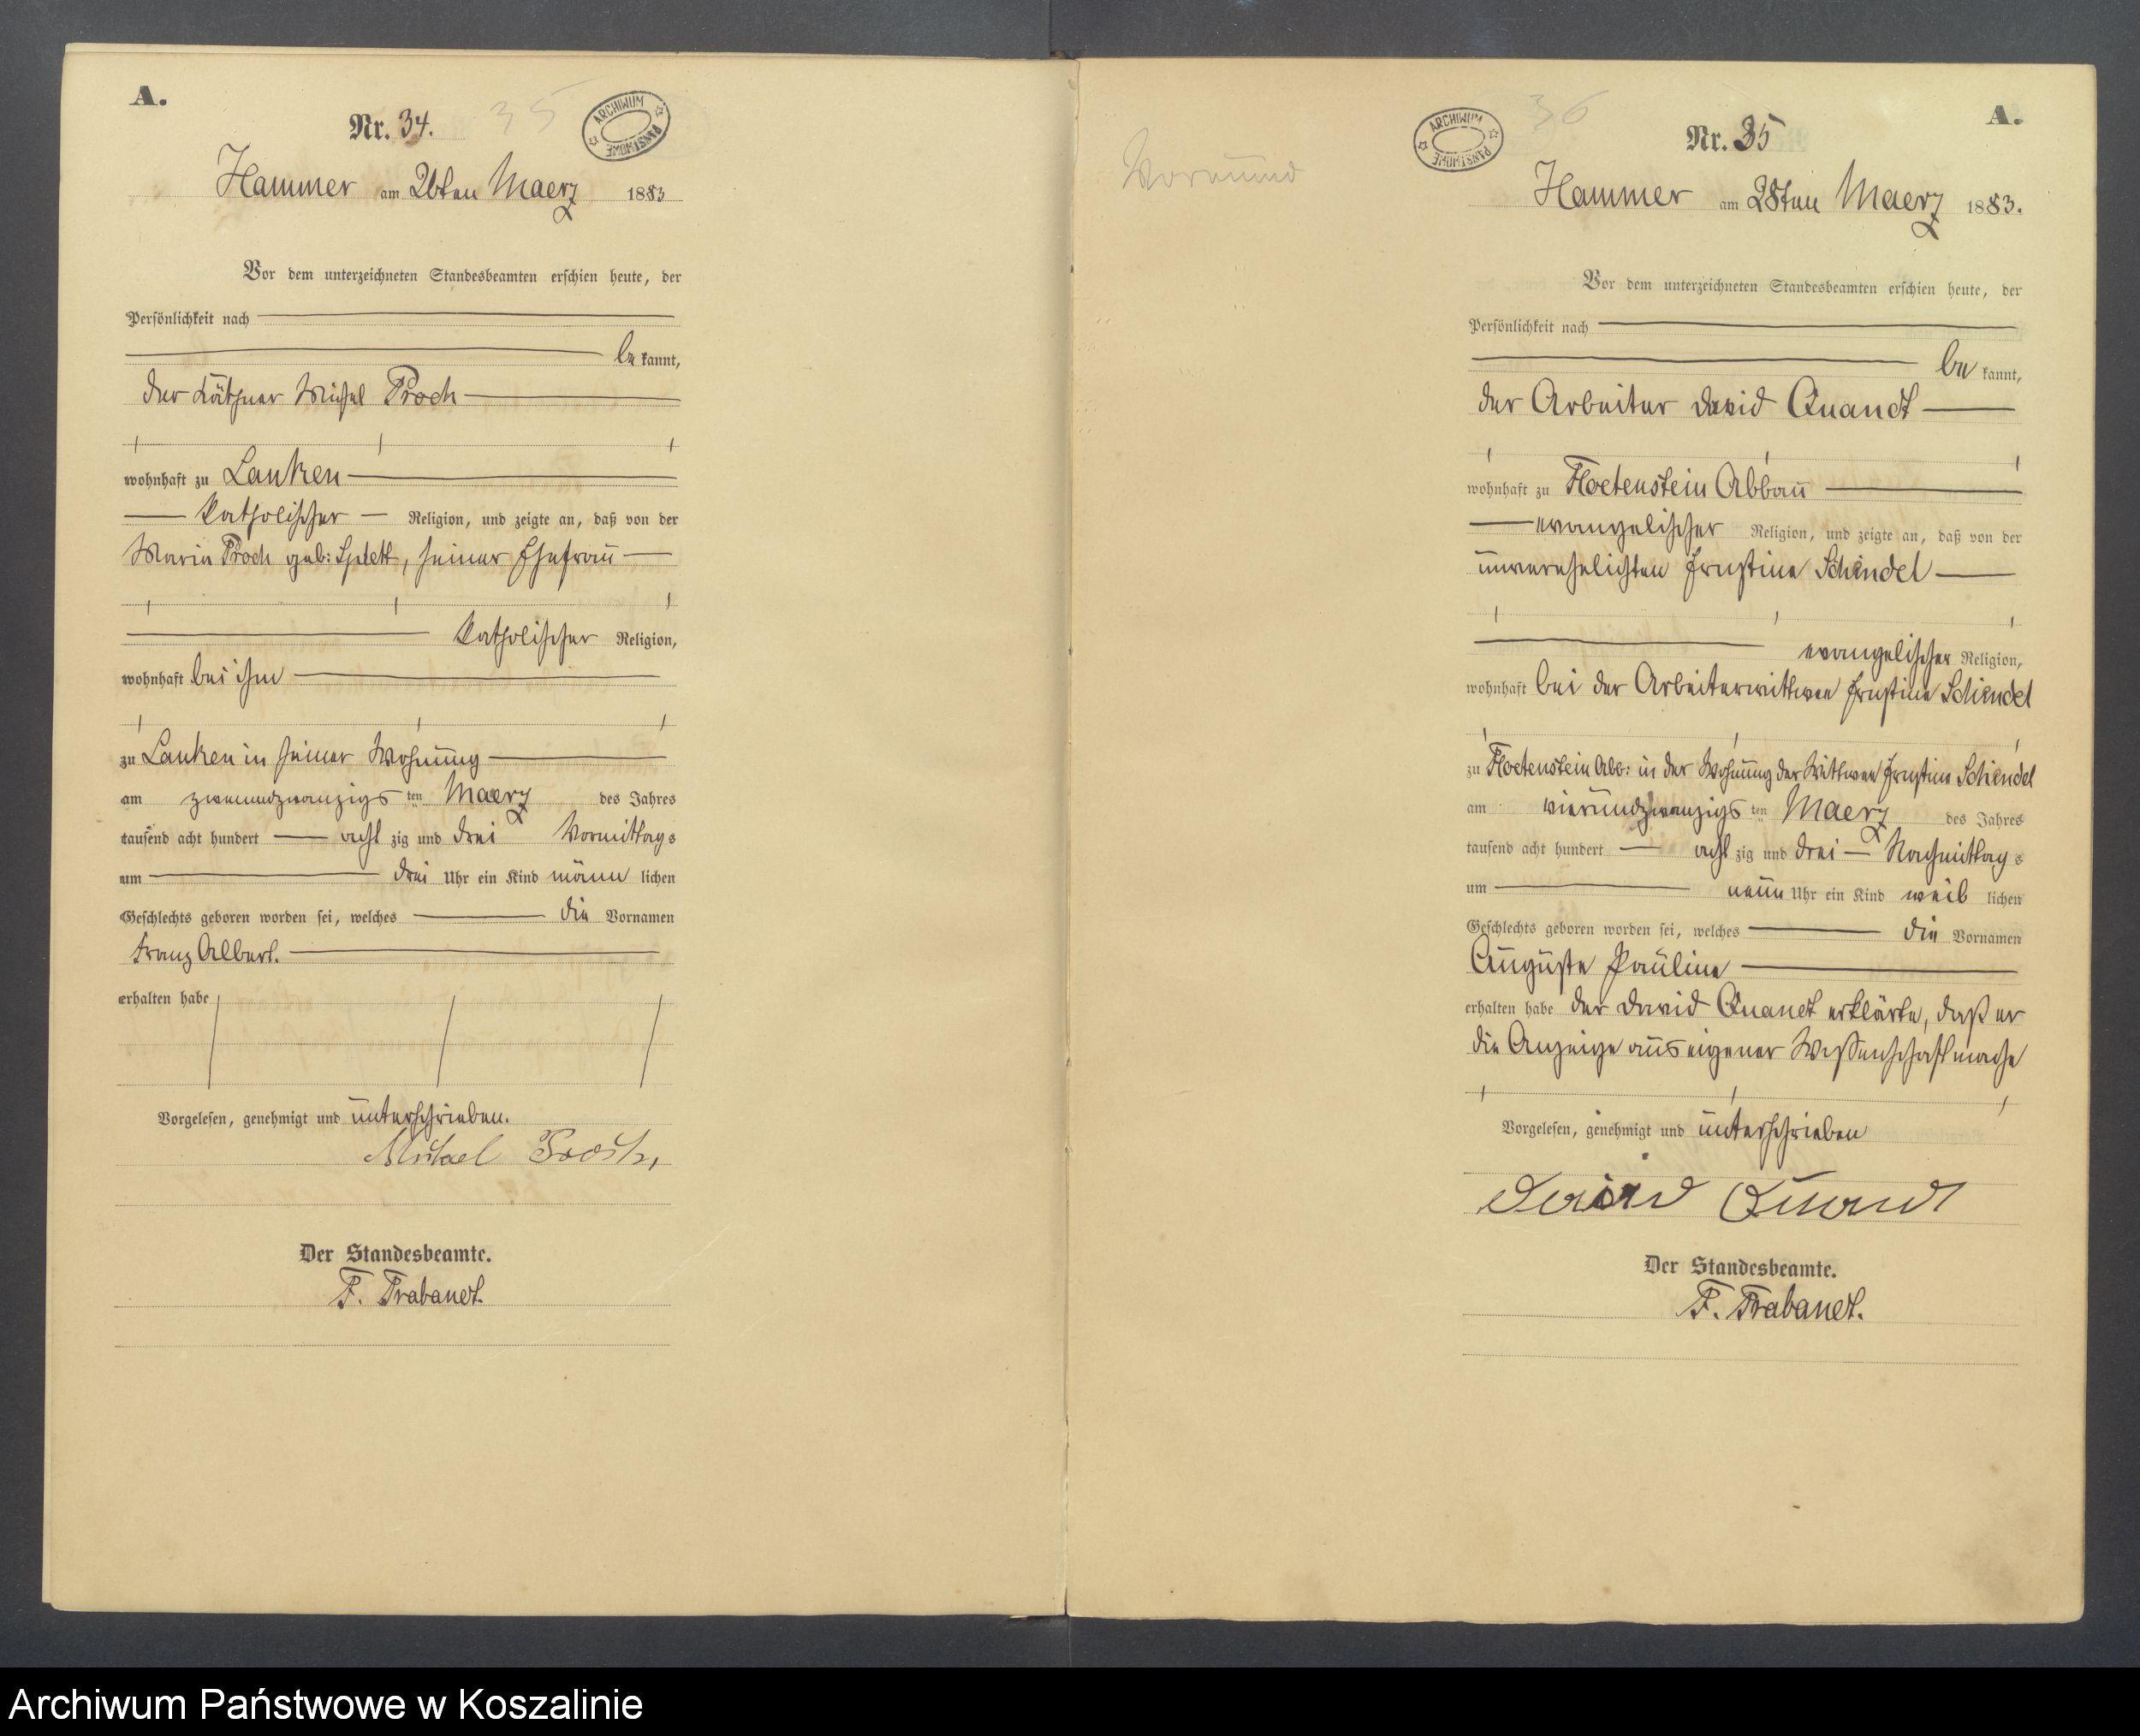 A.
Nr. 34.
35
ARCHIWUM PAŃSTWOWE
Hammer am 26ten Maerz 1883
Vor dem unterzeichneten Standesbeamten erschien heute, der
Persönlichkeit nach
be kannt,
der Käthner Michel Proch
wohnhaft zu Lanken
katholischer Religion, und zeigte an, daß von der
Maria Proch geb: Splett, seiner Ehefrau
katholischer Religion,
wohnhaft bei ihm
zu Lanken in seiner Wohnung
am zweiundzwanzigs ten Maerz des Jahres
tausend acht hundert acht zig und drei Vormittags
um drei Uhr ein Kind männ lichen
Geschlechts geboren worden sei, welches die Vornamen
Franz Albert.
erhalten habe
Vorgelesen, genehmigt und unterschrieben.
Michael Proch,
Der Standesbeamte.
F. Trabandt.
Vormund
ARCHIWUM PAŃSTWOWE
36
A.
Nr. 35
Hammer am 28ten Maerz 1883.
Vor dem unterzeichneten Standesbeamten erschien heute, der
Persönlichkeit nach
be kannt,
der Arbeiter David Quandt
wohnhaft zu Floetenstein Abbau
evangelischer Religion, und zeigte an, daß von der
unverehelichten Ernstine Schendel
evangelischer Religion,
wohnhaft bei der Arbeiterwittwee Ernstine Schendel
zu Floetenstein Abb: in der Wohnung der Wittwee Ernstine Schendel
am vierundzwanzigs ten Maerz des Jahres
tausend acht hundert acht zig und drei Nachmittag s
um neun Uhr ein Kind weib lichen
Geschlechts geboren worden sei, welches die Vornamen
Auguste Pauline
erhalten habe der David Quandt erklärte, daß er
die Anzeige aus eigener Wissenschaft mache
Vorgelesen, genehmigt und unterschrieben
David Quandt
Der Standesbeamte.
F. Trabandt.
Archiwum Państwowe w Koszalinie